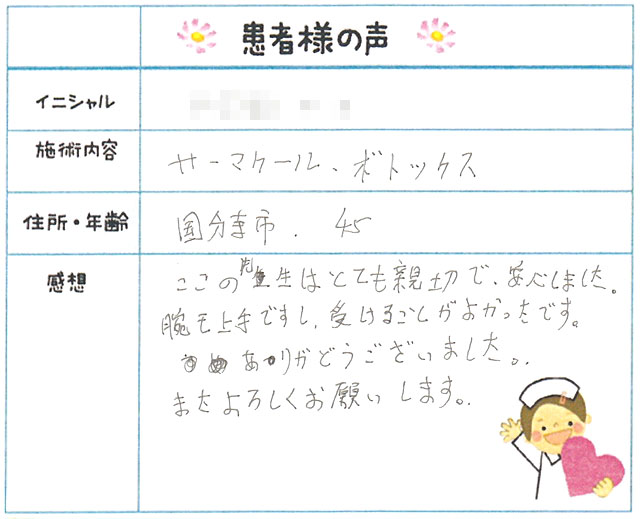 患者様の声
イニシャル
施術内容
サーマクール、ボトックス
住所・年齢
国分寺市. 45
感想
ここの先生はとても親切で、安心しました。
腕も上手ですし、受けることがよかったです。
ありがどうございました。
またよろしくお願いします。